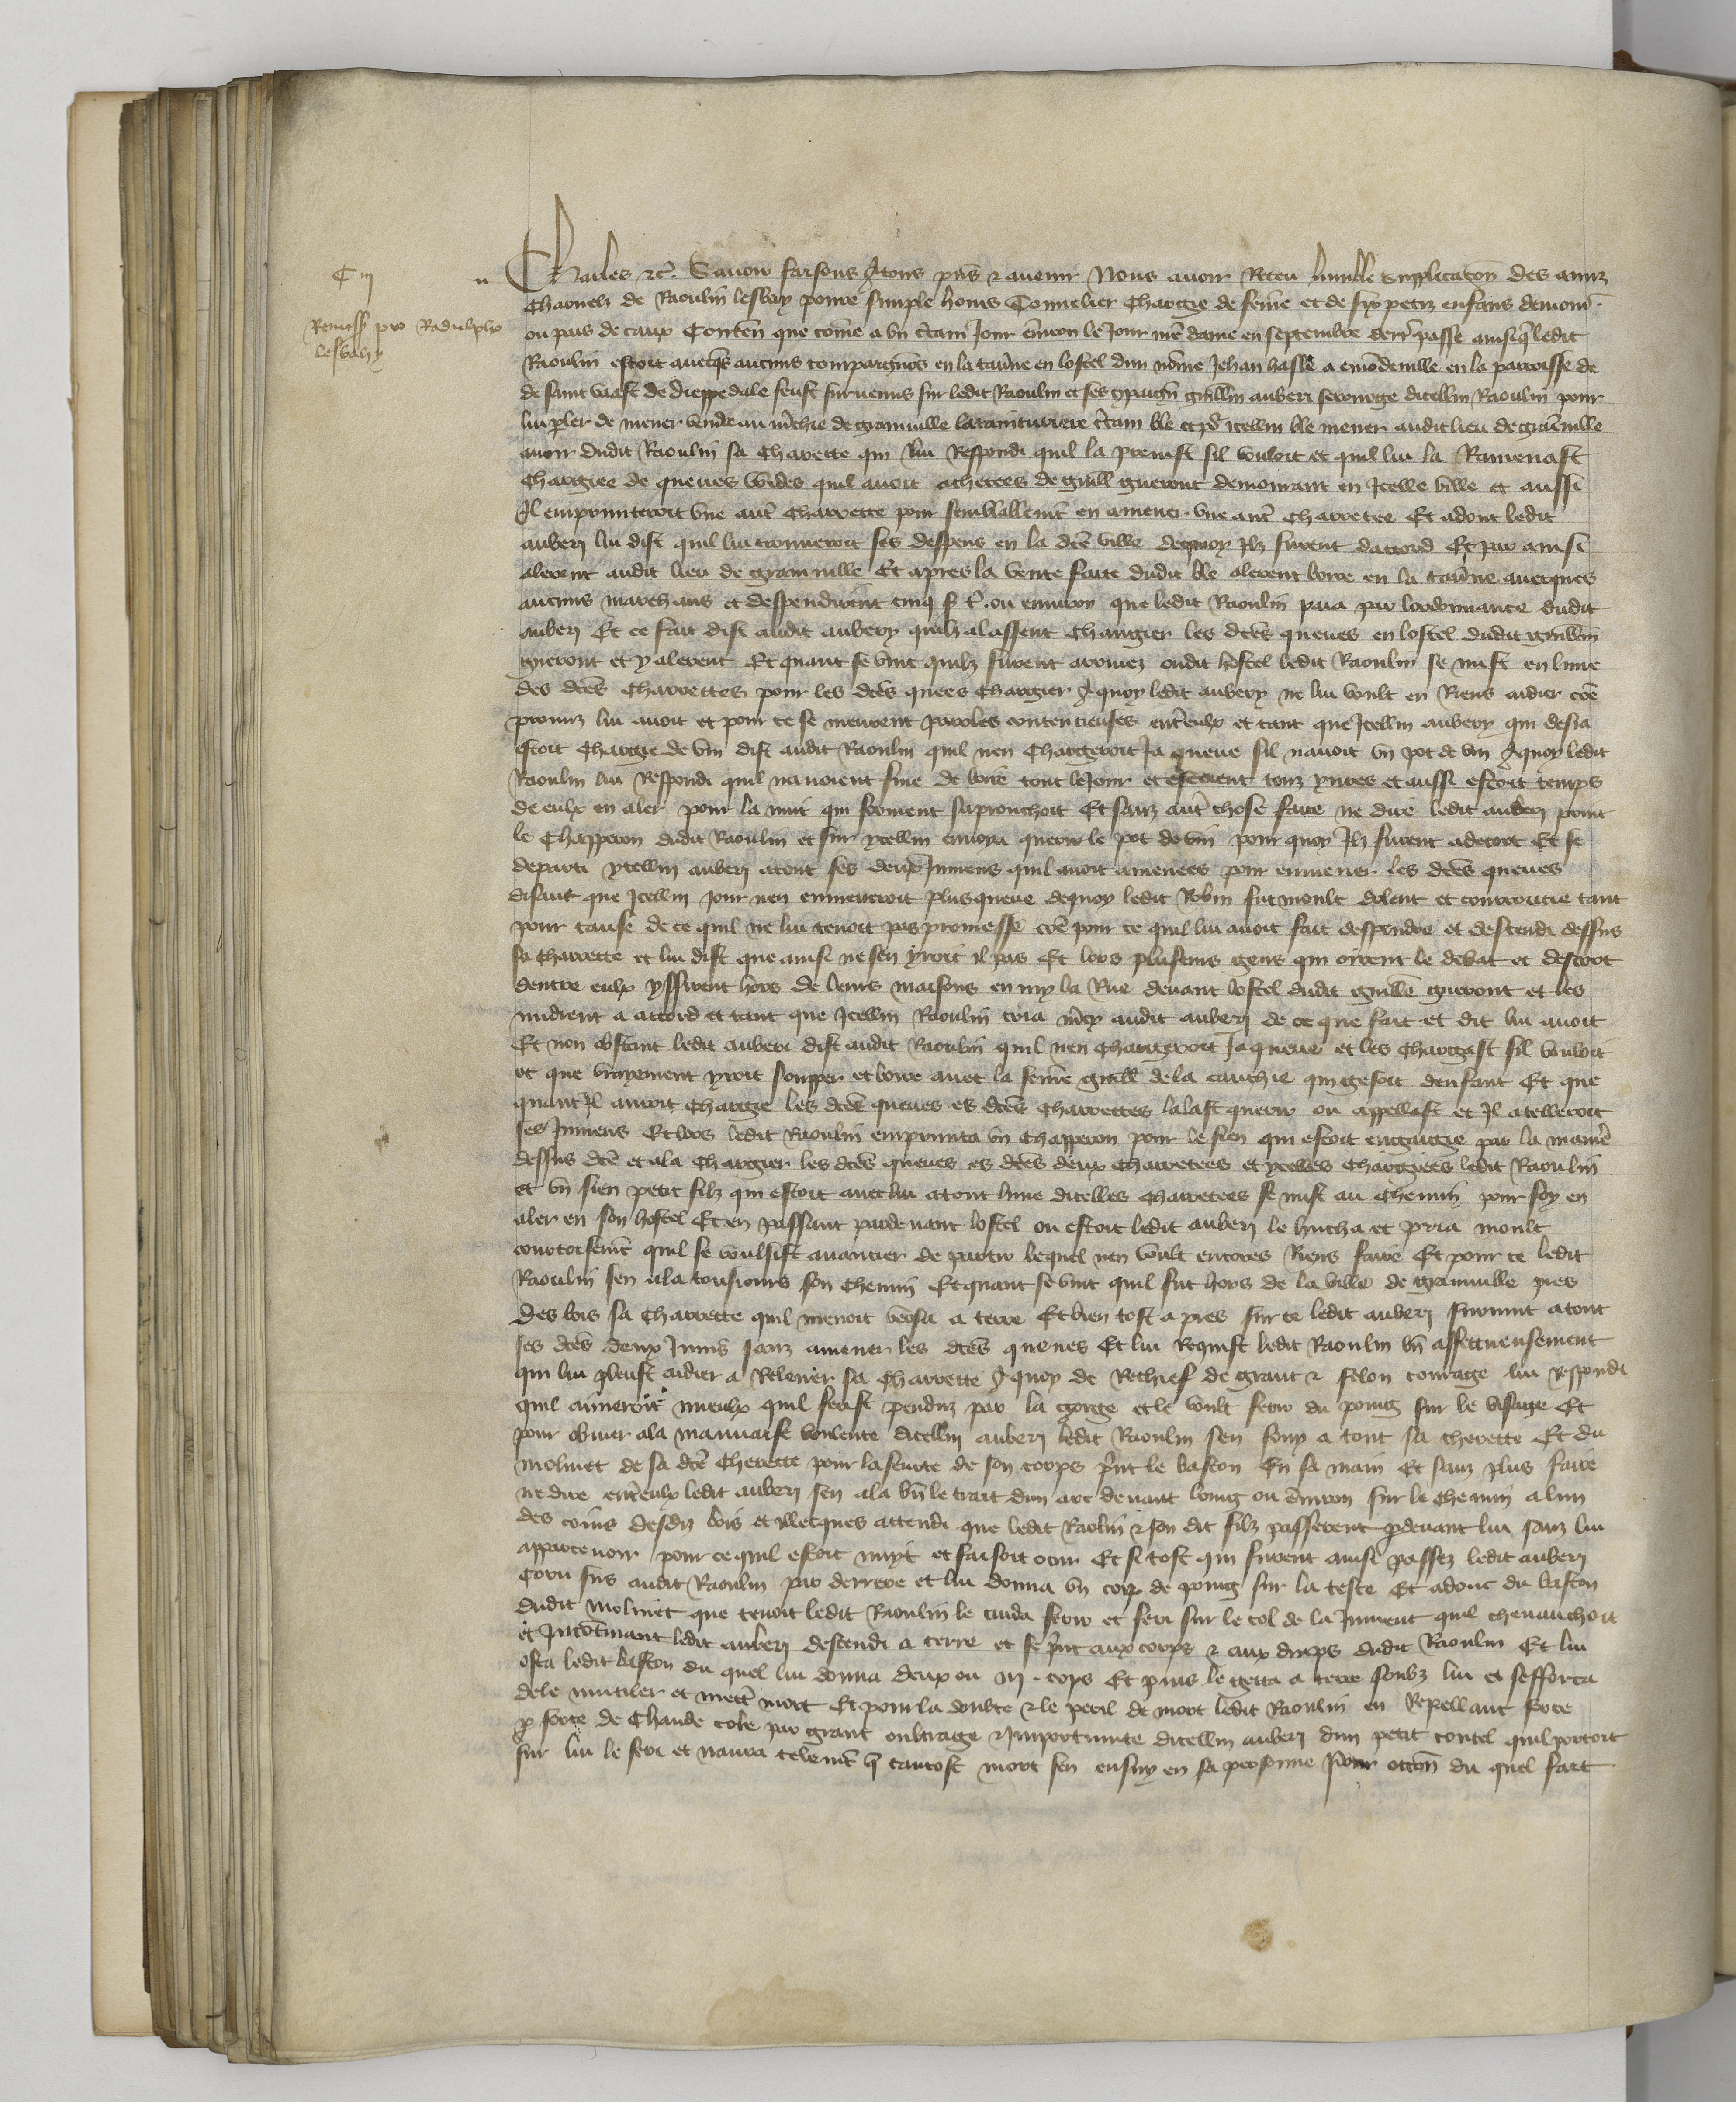 C iij
Remiss pro Radulpho
lesbahy
Charles etc. Savoir faisons a tous pns et avenir Nous avoir Receu humble supplicacion des amis
charnelz de Raoulin lesbahy povre simple homs Tonnelier chargie de feme et de six petiz enfans demour
ou pais de caux Conten que come a un ctain Jour environ le Jour nre dame en septembre derr passe ainsi q ledit
Raoulin estoit avecqs aucuns compaignons en la tavne en lostel dun nome Jehan hasle a emodeville en la parroisse de
de saint vaast de dieppedale feust survenus sur ledit Raoulin et ses gpaign guillin auberi serourge dicellui Raoulin pour
lui pler de mener vendre au mchie de grainville la tainturiere ctain ble et pr icellui ble mener audit lieu de grainville
avoir dudit Raoulin sa charette qui lui Respondi quil la preinst sil vouloit et quil lui la Ramenast
chargiee de queues vuides quil avoit achetees de guill gueront demourant en Icelle ville et aussi
Il emprunteroit une autre charrette pour semblablement en amener une autre charretee Et adont ledit
aubery lui dist quil lui trouveroit ses despens en la dicte ville de quoy Ilz furent dacord Et par ainsi
alerent audit lieu de grainville Et apres la vente faite dudit ble alerent boire en la tavne avecques
aucuns marchans et despendirent cinq s t. ou environ que ledit Raoulin paia par lordonnance dudit
aubery Et ce fait dist audit aubery quilz alassent chargier les dces queues en lostel dudit guillem
gueront et y alerent Et quant se vint quilz furent arrivez oudit hostel ledit Raoulin se mist en lune
des dces charrettes pour les dces queues chargier A quoy ledit aubery ne lui voult en Riens aidier coe
promis lui avoit et pour ce se meurent paroles contencieuses entreulx et tant que Icellui aubery qui desja
estoit chargie de vin dist audit Raoulin quil nen chargeroit Ja queue sil navoit un pot de vin A quoy ledit
Raoulin lui Respondi quil navoient fine de boire tout le Jour et estoient touz yvres et aussi estoit temps
de eulx en aler pour la nuit qui forment saprouchoit Et sanz autre chose faire ne dire ledit aubery print
le chapperon dudit Raoulin et sur ycellui envoya querir le pot de vin pour quoy Ilz furent a descort Et se
departi ycellui aubery atout ses deux Jumens quil avoit amenees pour emmener les dces queues
disant que Icellui jour nen emmenroit plus queue de quoy ledit Robin fut moult dolent et courroucie tant
pour cause de ce quil ne lui tenoit pas promesse coe pour ce quil lui avoit fait despendre et descendi dessus
sa charrette et lui dist que ainsi ne sen yroit il pas Et lors pluseurs gens qui oirent le debat et descort
dentre eulx yssirent hors de leurs maisons enmy la Rue devant lostel dudit guille gueront et les
midrent a accord et tant que Icellui Raoulin cria mcy audit aubery de ce que fait et dit lui avoit
Et non obstant ledit auberi dist audit Raoulin quil nen chargeroit Ja queue et les chargast sil vouloit
et que vrayement yroit soupper et boire avec la feme guill de la cauchie qui gesoit denfant Et que
quant Il auroit chargie les dces queues es dces charrettes lalast querir ou appellast et Il atelleroit
ses Jumens Et lors ledit Raoulin emprunta un chapperon pour le sien qui estoit engaigie par la maniere
dessus dce et ala chargier les dces queues es dces deux charretees et ycelles chargiees ledit Raoulin
et un sien petit filz qui estoit avec lui atout lune dicelles charretees se mist au chemin pour soy en
aler en son hostel Et en passant pardevant lostel ou estoit ledit aubery le hucha et pria moult
courtoisement quil se voulsist avancier de partir lequel nen voult encores Riens faire Et pour ce ledit
Raoulin sen ala tousiours son chemin Et quant se vint quil fut hors de la ville de grainville pres
des bois sa charrette quil menoit versa a terre Et bien tost apres sur ce ledit aubery survint atout
ses dces deux Jumens sanz amener les dces queues Et lui Requist ledit Raoulin bn affectueusement
qui lui pleust aidier a Relever sa charrette A quoy de Rechief de grant et felon courage lui respondi
quil aimeroit mieulx quil feust penduz par la gorge et le voult ferir du poing sur le visage Et
pour obvier a la mauvaise voulente dicellui aubery ledit Raoulin sen fouy atout sa cherette Et du
molinet de sa dce cherette pour la seurte de son corps print le baston En sa main Et sanz plus faire
ne dire entreulx ledit aubery sen ala bn le trait dun arc devant loing ou environ sur le chemin a lun
des coins desdiz bois et illecques attendi que ledit Raolin et son dit filz passerent pardevant lui sanz lui
appercevoir pour ce quil estoit nuyt et faisoit ocur Et si tost qui furent ainsi passez ledit aubery
coru sus audit Raoulin par derriere et lui donna un cop de poing sur la teste Et adonc du baston
dudit molinet que tenoit ledit Raoulin le cuida ferir et feri sur le col de la Jument quil chevauchoit
et Incontinant ledit aubery descendi a terre et se print aux corps et aux draps dudit Raoulin Et lui
osta ledit baston du quel lui donna deux ou iii cops Et puis le getta a terre soubz lui et sefforca
de le mutiler et mettre mort Et pour la doubte et le peril de mort ledit Raoulin en Repellant force
p force de chaude cole par grant oultrage et Importunite dicellui aubery dun petit coutel quil portoit
sur lui le feri et navra telement q tantost mort sen ensuy en sa personne Pour occon du quel fait